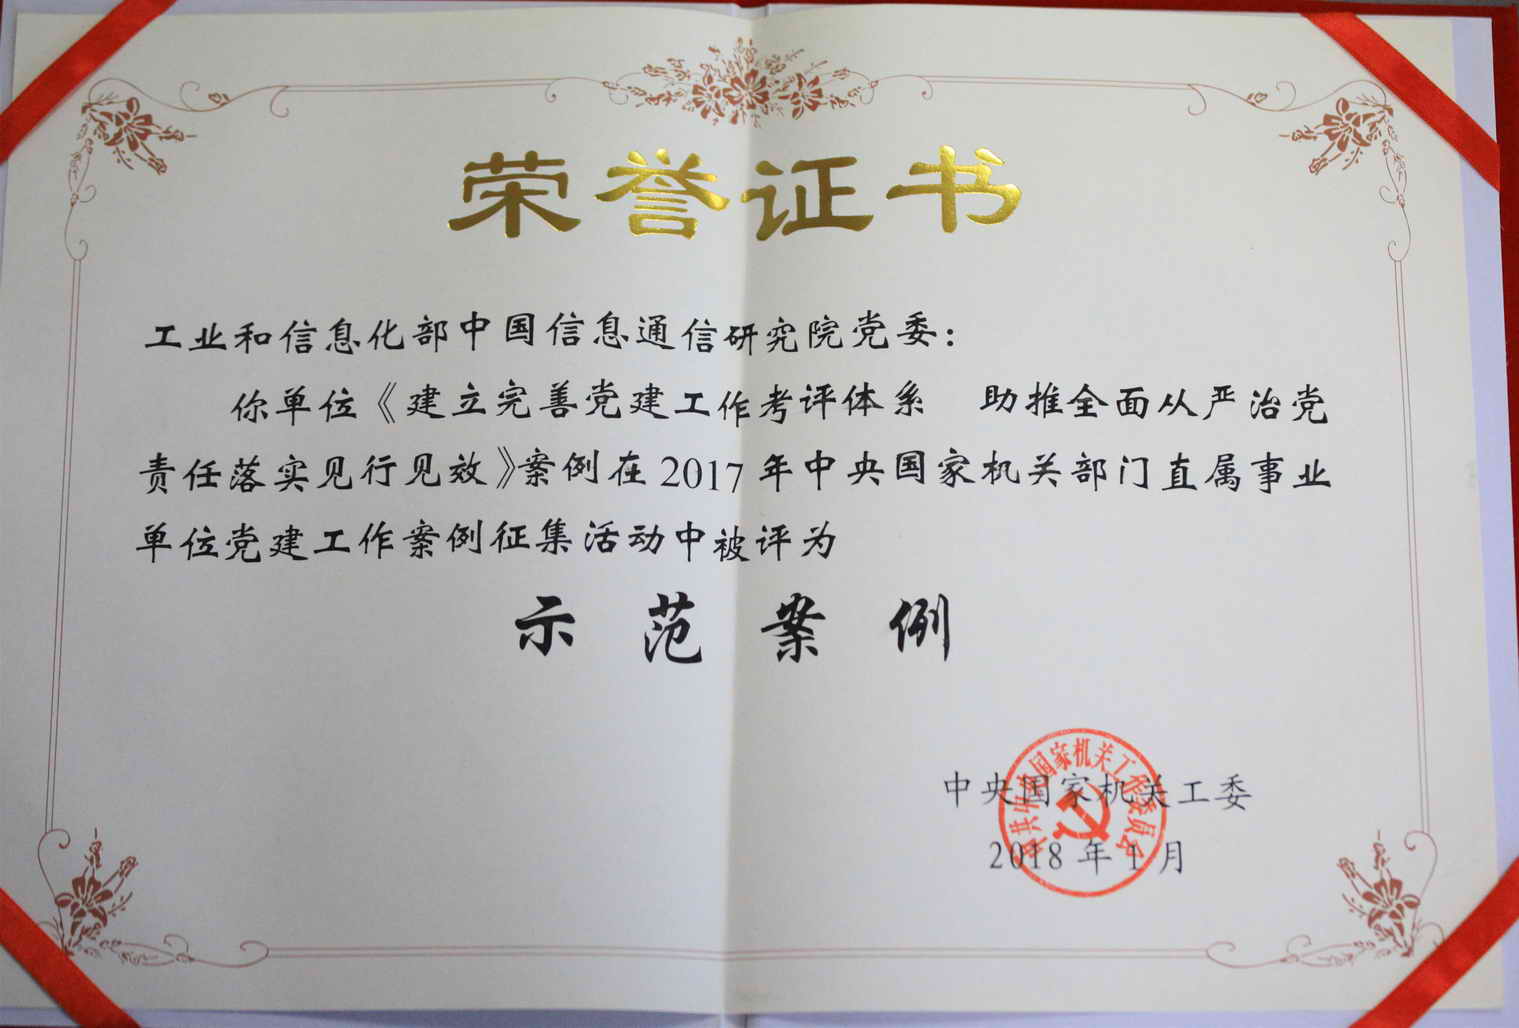 荣誉证书
工业和信息化部中国信息通信研究院党委：
你单位《建立完善党建工作考评体系　助推全面从严治党
责任落实见行见效》案例在2017年中央国家机关部门直属事业
单位党建工作案例征集活动中被评为
示范案例
中央国家机关工委
2018年1月
中共中央国家机关工作委员会